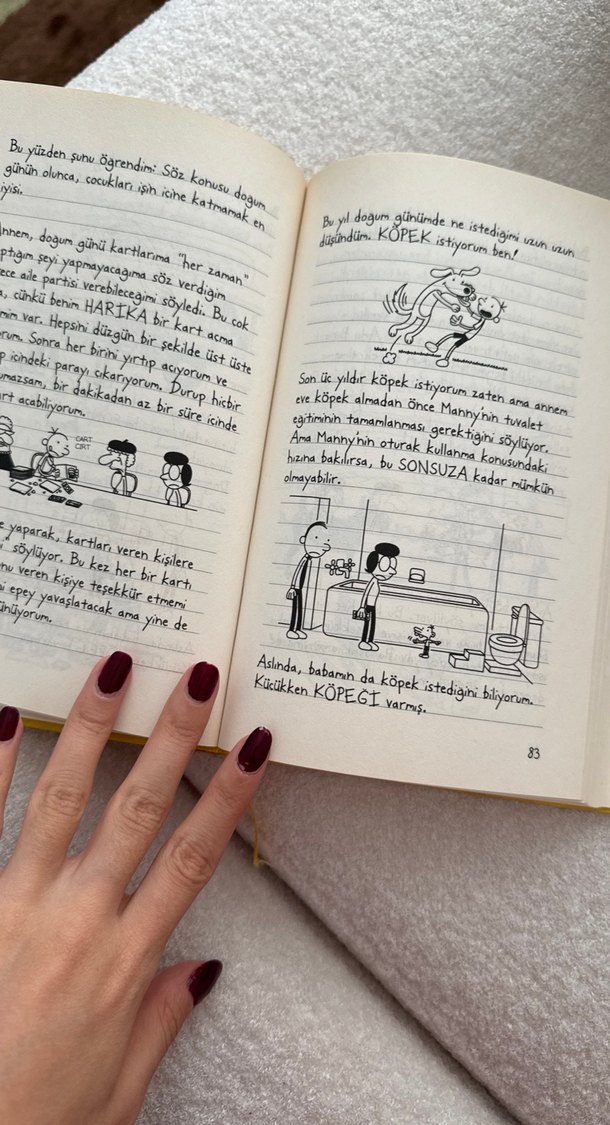 Bu yüzden şunu öğrendim: Söz konusu doğum
günün olunca, çocukları işin içine katmamak en
iyisi.
Annem, doğum günü kartlarıma "her zaman"
şeyi yapmayacağıma söz verdiğim
aile partisi verebileceğimi söyledi. Bu çok
çünkü benim HARİKA bir kart açma
var. Hepsini düzgün bir şekilde üst üste
Sonra her birini yırtıp açıyorum ve
içindeki parayı çıkarıyorum. Durup hiçbir
bir dakikadan az bir süre içinde
açabiliyorum.
CART
CIRT
yaparak, kartları veren kişilere
söylüyor. Bu kez her bir kartı
veren kişiye teşekkür etmemi
epey yavaşlatacak ama yine de
Bu yıl doğum günümde ne istediğimi uzun uzun
düşündüm. KÖPEK istiyorum ben!
Son üç yıldır köpek istiyorum zaten ama annem
eve köpek almadan önce Manny'nin tuvalet
eğitiminin tamamlanması gerektiğini söylüyor.
Ama Manny'nin oturak kullanma konusundaki
hızına bakılırsa, bu SONSUZA kadar mümkün
olmayabilir.
Aslında, babamın da köpek istediğini biliyorum.
Küçükken KÖPEĞİ varmış.
83